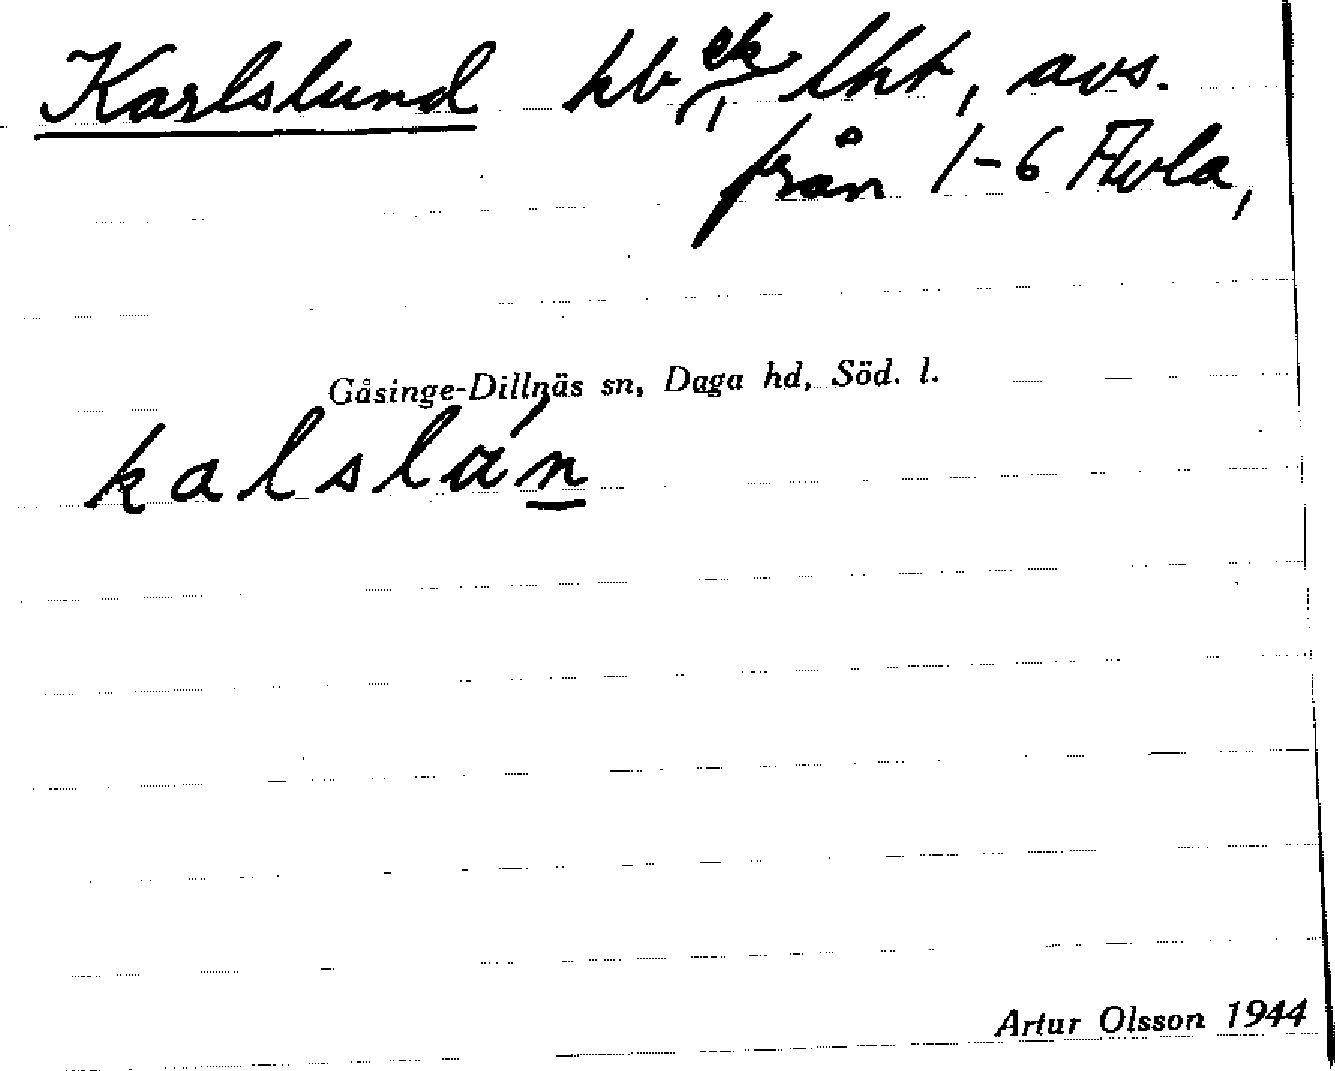 Karlslund hb ek lht, avs.
från 1-6 Åvla,
Gåsinge-Dillnäs sn, Daga hd, Söd. l.
kalslán
Artur Olsson 1944